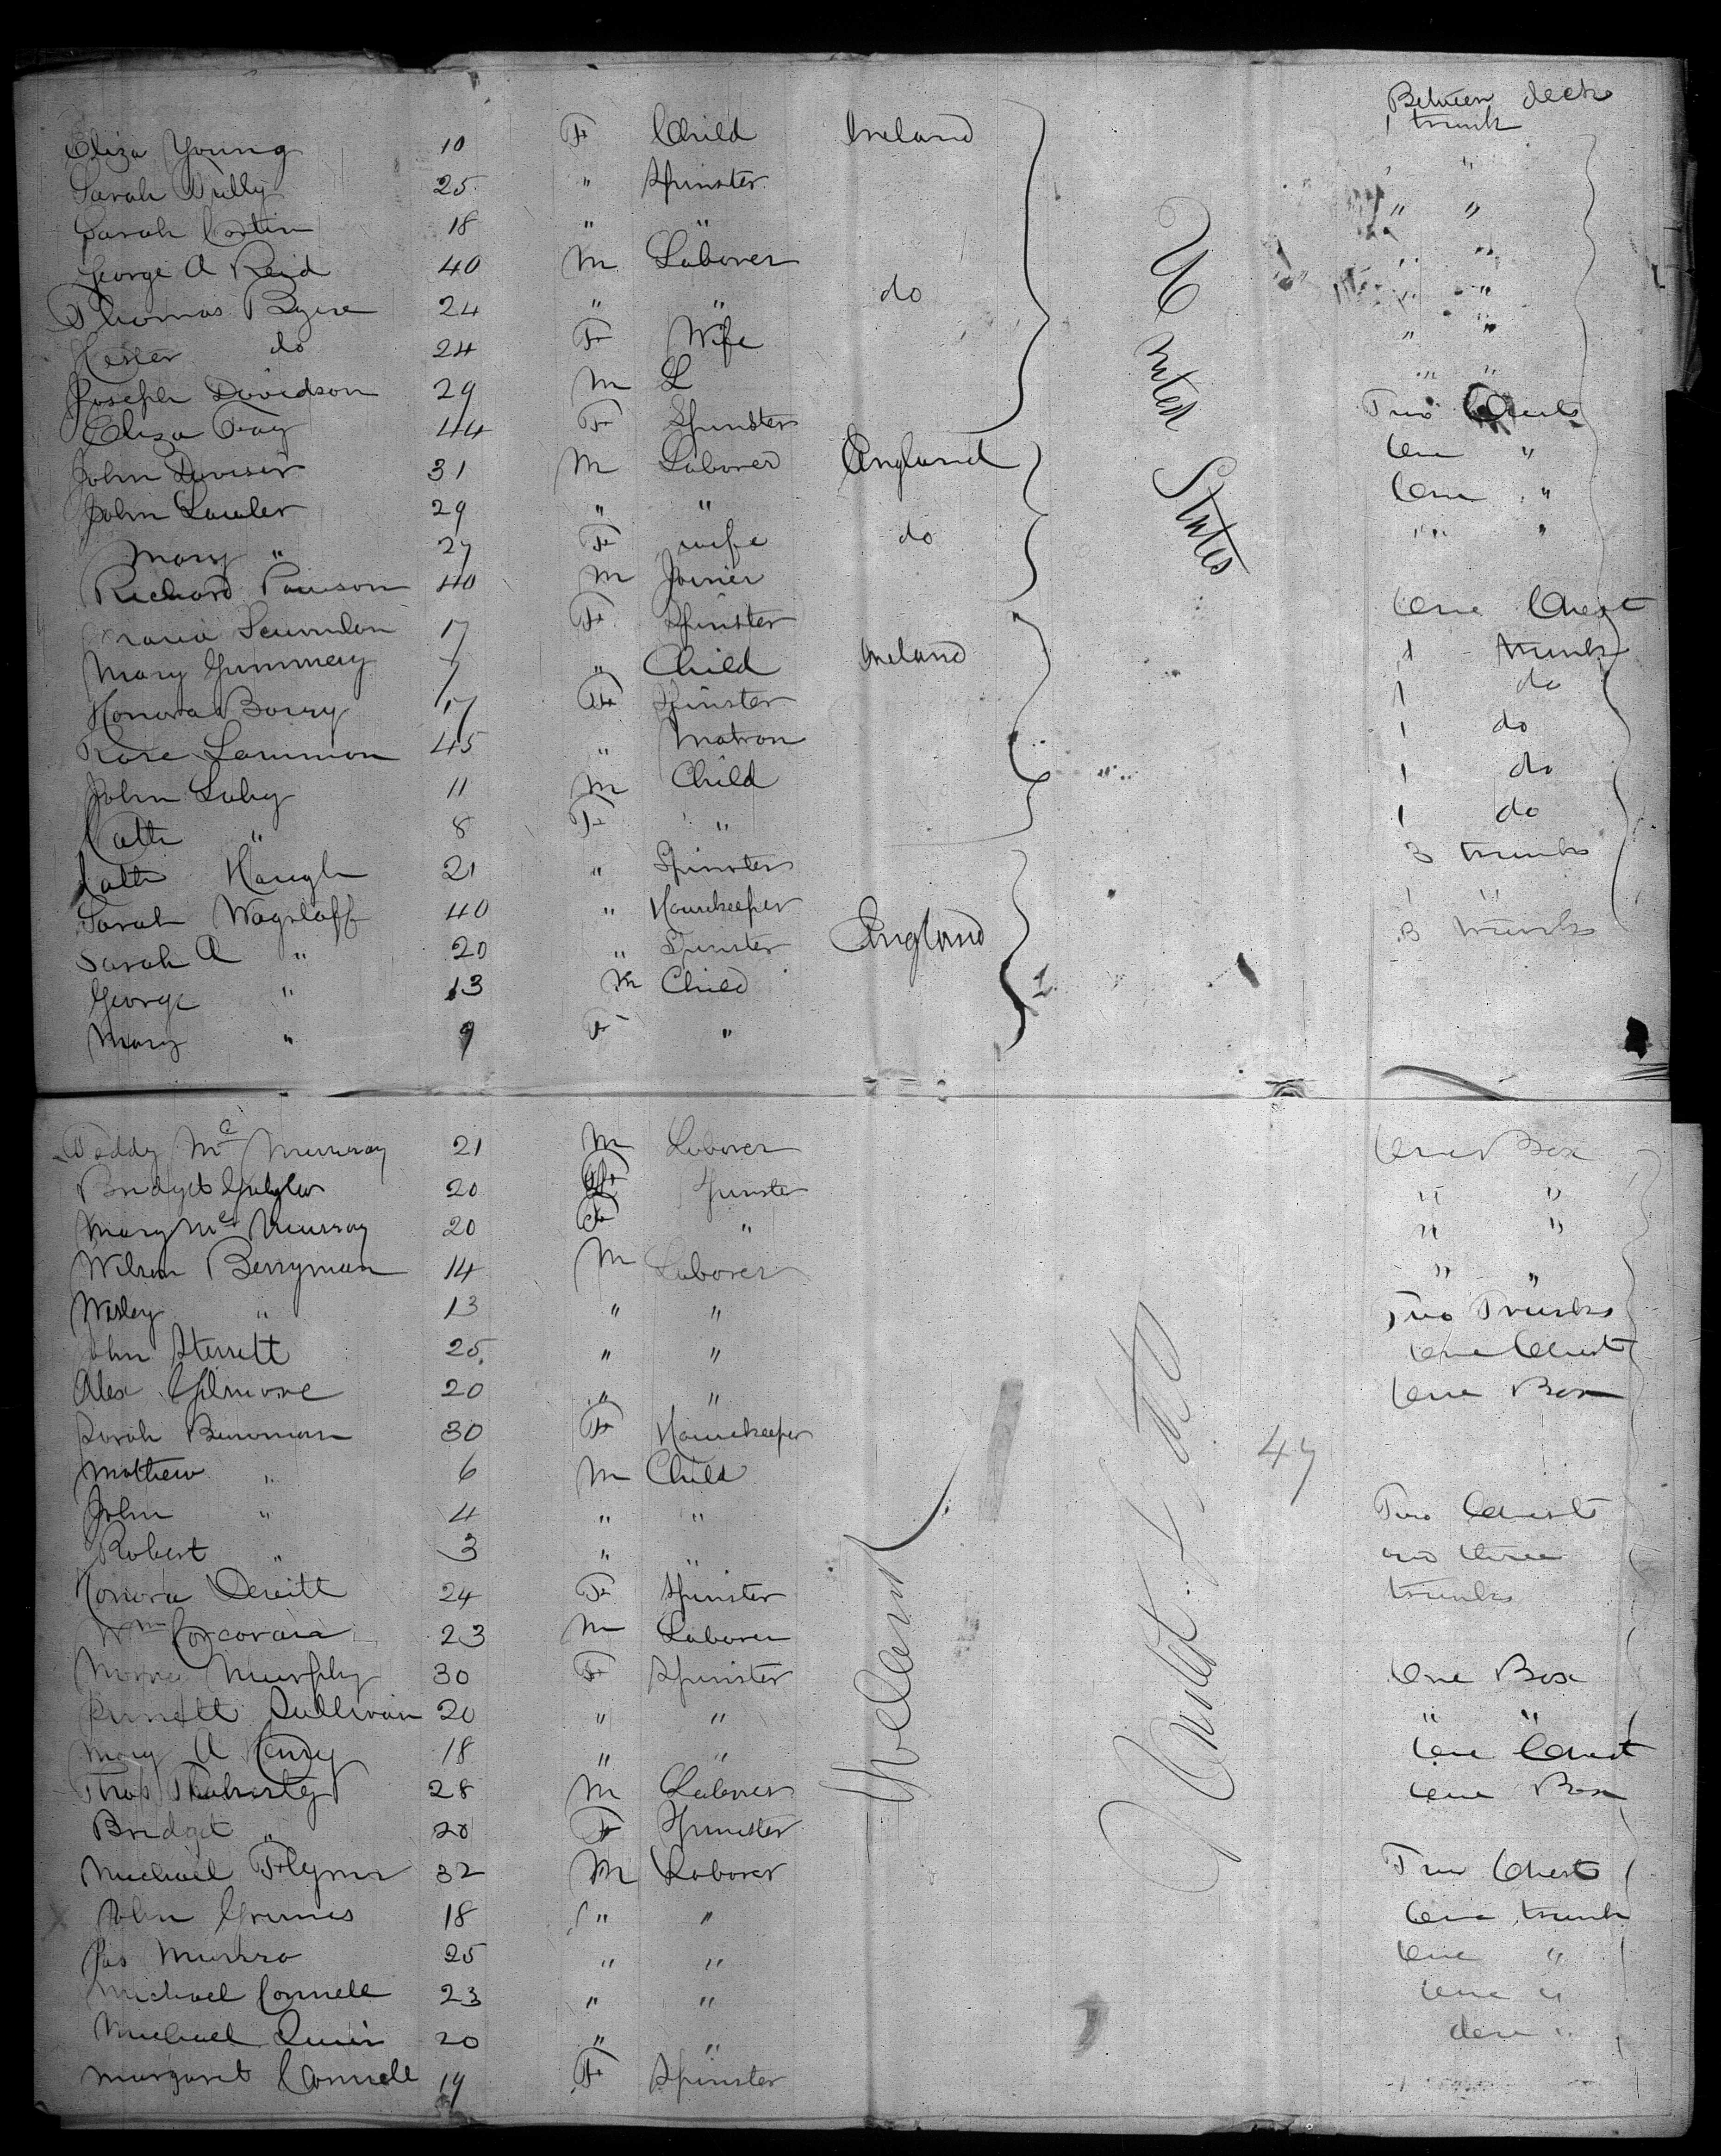 Between decks
Eliza Young 10 F Child Ireland 1 trunk
Sarah Tully 25 " Spinster " "
Sarah Costin 18 " " " "
George A Reid 40 M Laborer " "
Thomas Byrne 24 " " do " "
Hester do 24 F Wife " "
Joseph Davidson 29 M L " "
Eliza Fay 44 F Spinster Two Chests
John Deviser 31 M Laborer England One "
John Lawler 29 " " One "
Mary " 27 F wife do " "
Richard Pawson 40 M Joiner
Maria 17 F Spinster One Chest
Mary Gummery 7 " Child Ireland 1 trunk
Honora Barry 17 F Spinster 1 do
Rose Lammon 45 " Matron 1 do
John Luby 11 M Child 1 do
Cath " 8 F " 1 do
Cath Haugh 21 " Spinster 3 trunks
Sarah Wagstaff 40 " Housekeeper 1 "
Sarah A " 20 " Spinster England 3 trunks
George " 13 M Child
Mary " 9 F "
United States
Paddy McMurray 21 M Laborer One Box
Bridget 20 F Spinster " "
Mary McMurray 20 F " " "
Wilson Berryman 14 M Laborer " "
Wesley " 13 " " Two Trunks
John Sterrett 25 " " One Chest
Alex Gilmore 20 " " One Box
Sarah Bowman 30 F Housekeeper
Mathew " 6 M Child
John " 4 " " Two Chests
Robert " 3 " " and three
Honora Devitt 24 F Spinster trunks
Wm Corcoran 23 M Laborer
Murphy 30 F Spinster One Box
Sullivan 20 " " " "
Mary A Henry 18 " " One Chest
Thos Flaherty 28 M Laborer One Box
Bridget " 20 F Spinster
Michael Flynn 32 M Laborer Two Chests
John Grimes 18 " " One trunk
Jas Munro 25 " " One "
Michael Connell 23 " " One "
Michael Quin 20 " " One "
Margaret Connell 19 F Spinster
Ireland
United States
47